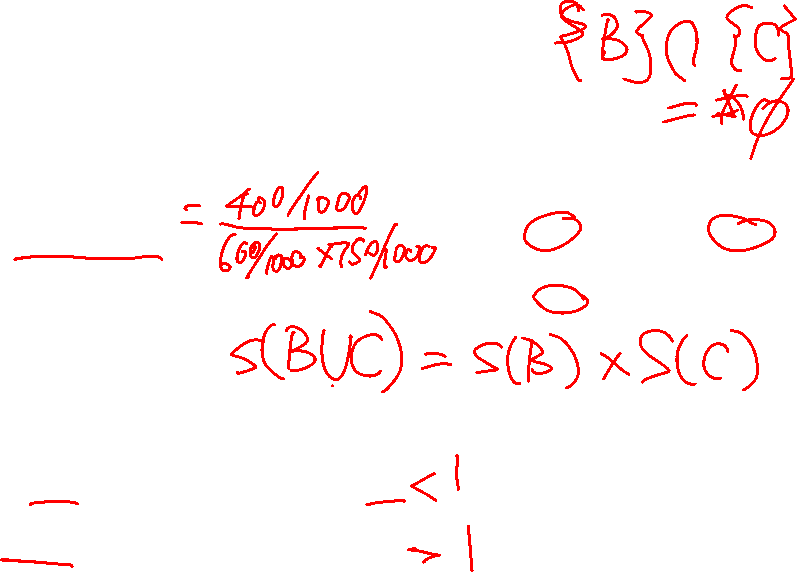 {B} ∩ {C}
= *∅
= 400/1000
600/1000 × 750/1000
s(B∪C) = s(B) × s(C)
< 1
> 1